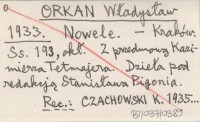 ORKAN Władysław
1933. Nowele. - Kraków.
Ss. 193, obl. Z przedmową Kazi-
mierza Tetmajera. Dzieła pod
redakcją Stanisława Pigonia.
Rec.: CZACHOWSKI K. 1935...